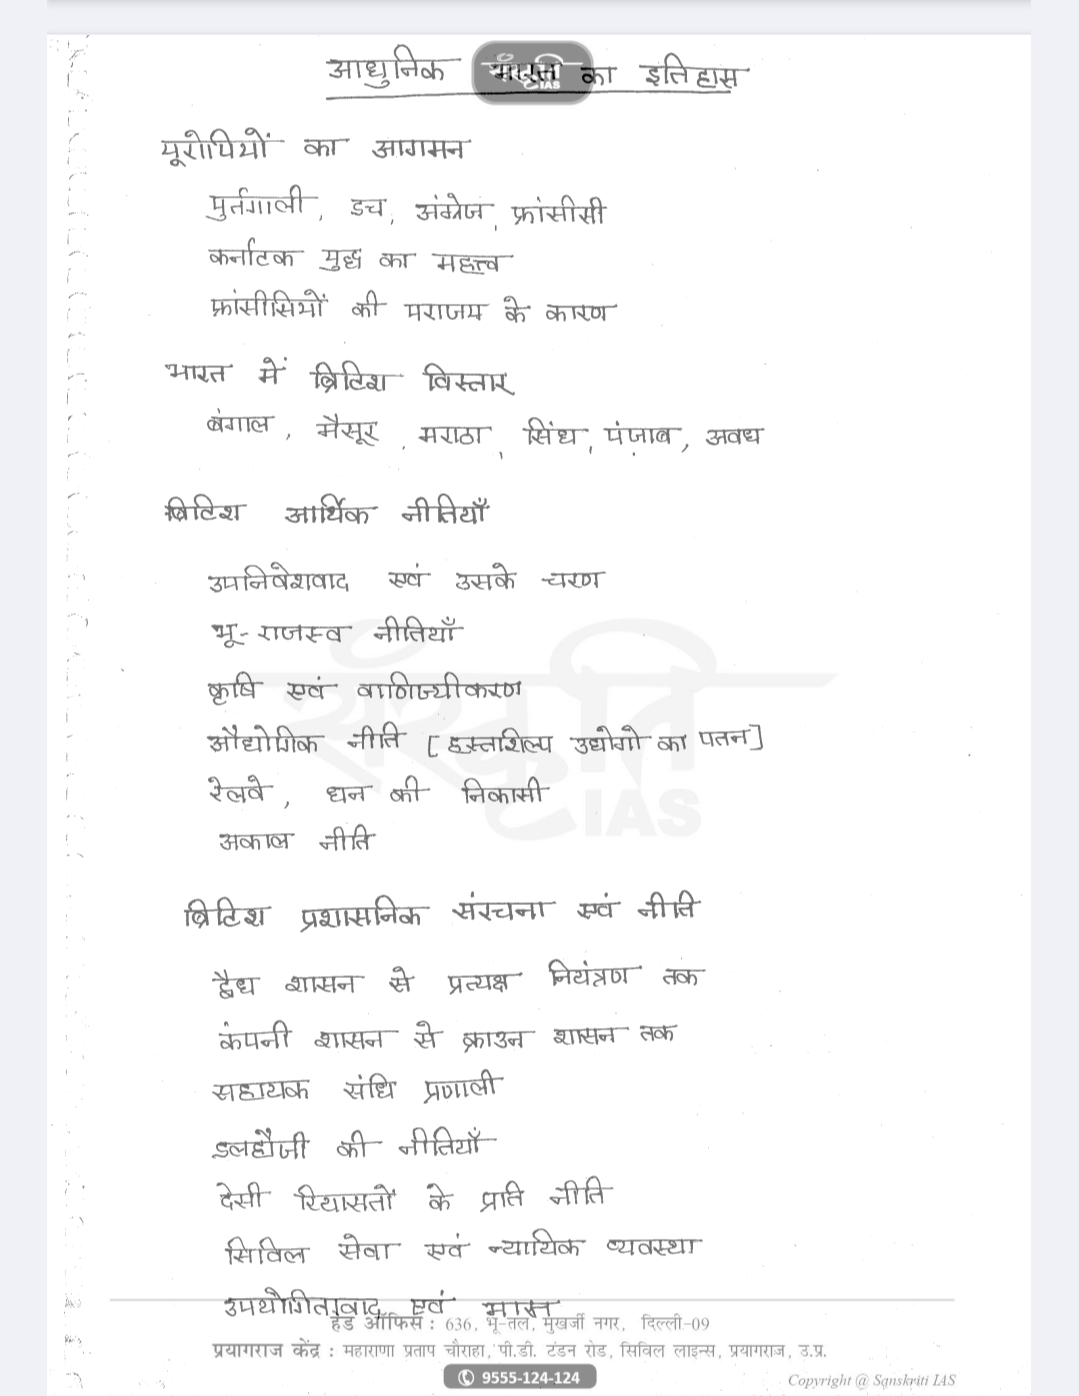 आधुनिक भारत का इतिहास
यूरोपियों का आगमन
पुर्तगाली, डच, अंग्रेज, फ्रांसीसी
कर्नाटक युद्ध का महत्त्व
फ्रांसीसियों की पराजय के कारण
भारत में ब्रिटिश विस्तार
बंगाल, मैसूर, मराठा, सिंध, पंजाब, अवध
ब्रिटिश आर्थिक नीतियाँ
उपनिवेशवाद एवं उसके चरण
भू-राजस्व नीतियाँ
कृषि एवं वाणिज्यीकरण
औद्योगिक नीति [हस्तशिल्प उद्योगो का पतन]
रेलवे, धन की निकासी
अकाल नीति
संस्कृति
IAS
ब्रिटिश प्रशासनिक संरचना एवं नीति
द्वैध शासन से प्रत्यक्ष नियंत्रण तक
कंपनी शासन से क्राउन शासन तक
सहायक संधि प्रणाली
डलहौजी की नीतियाँ
देसी रियासतों के प्रति नीति
सिविल सेवा एवं न्यायिक व्यवस्था
उपयोगितावाद एवं भारत
हेड ऑफिस : 636, भू-तल, मुखर्जी नगर, दिल्ली-09
प्रयागराज केंद्र : महाराणा प्रताप चौराहा, पी.डी. टंडन रोड, सिविल लाइन्स, प्रयागराज, उ.प्र.
9555-124-124
Copyright @ Sanskriti IAS